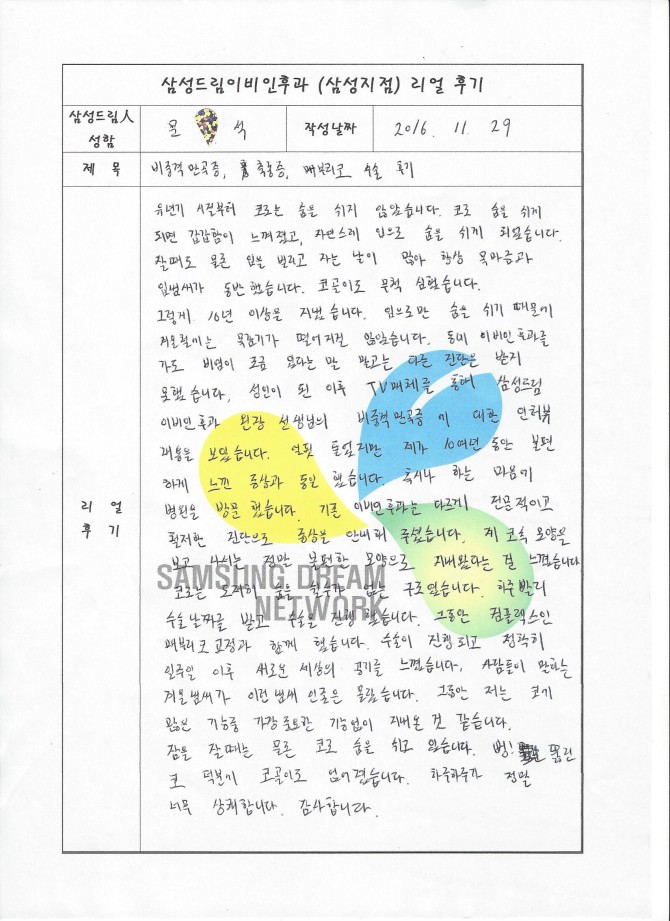 삼성드림이비인후과 (삼성지점) 리얼 후기
삼성드림人
성함
문 석
작성날짜
2016. 11. 29
제 목
비중격 만곡증, 축농증, 매부리코 수술 후기
리 얼
후 기
유년기 시절부터 코로는 숨을 쉬지 않았습니다. 코로 숨을 쉬게
되면 갑갑함이 느껴졌고, 자연스레 입으로 숨을 쉬게 되었습니다.
잘때도 물론 입을 벌리고 자는 날이 많아 항상 목마름과
입냄새가 동반했습니다. 코골이도 무척 심했습니다.
그렇게 10년 이상을 지냈습니다. 입으로만 숨을 쉬기 때문에
겨울철에는 목감기가 떨어지질 않았습니다. 동네 이비인후과를
가도 비염이 조금 있다는 말 말고는 다른 진단은 받지
못했습니다. 성인이 된 이후 TV매체를 통해 삼성드림
이비인후과 원장 선생님의 비중격만곡증에 대한 인터뷰
내용을 보았습니다. 얼핏 들었지만 제가 10여년 동안 불편
하게 느낀 증상과 동일했습니다. 혹시나 하는 마음에
병원을 방문했습니다. 기존 이비인후과는 다르게 전문적이고
철저한 진단으로 증상을 안내해 주셨습니다. 제 코속 모양을
보고 나서는 정말 불편한 모양으로 지내왔다는 걸 느꼈습니다
코로는 도저히 숨을 쉴수가 없는 구조였습니다. 하루빨리
SAMSUNG DREAM
NETWORK
수술날짜를 받고 수술을 진행했습니다. 그동안 컴플렉스인
매부리코 교정과 함께 했습니다. 수술이 진행되고 정확히
일주일 이후 새로운 세상의 공기를 느꼈습니다. 사람들이 말하는
겨울냄새가 이런 냄새 인줄은 몰랐습니다. 그동안 저는 코의
많은 기능중 가장 중요한 기능없이 지내온 것 같습니다.
잠을 잘때는 물론 코로 숨을 쉬고 있습니다. 뻥! 뚫린
코 덕분에 코골이도 없어졌습니다. 하루하루가 정말
너무 상쾌합니다. 감사합니다.